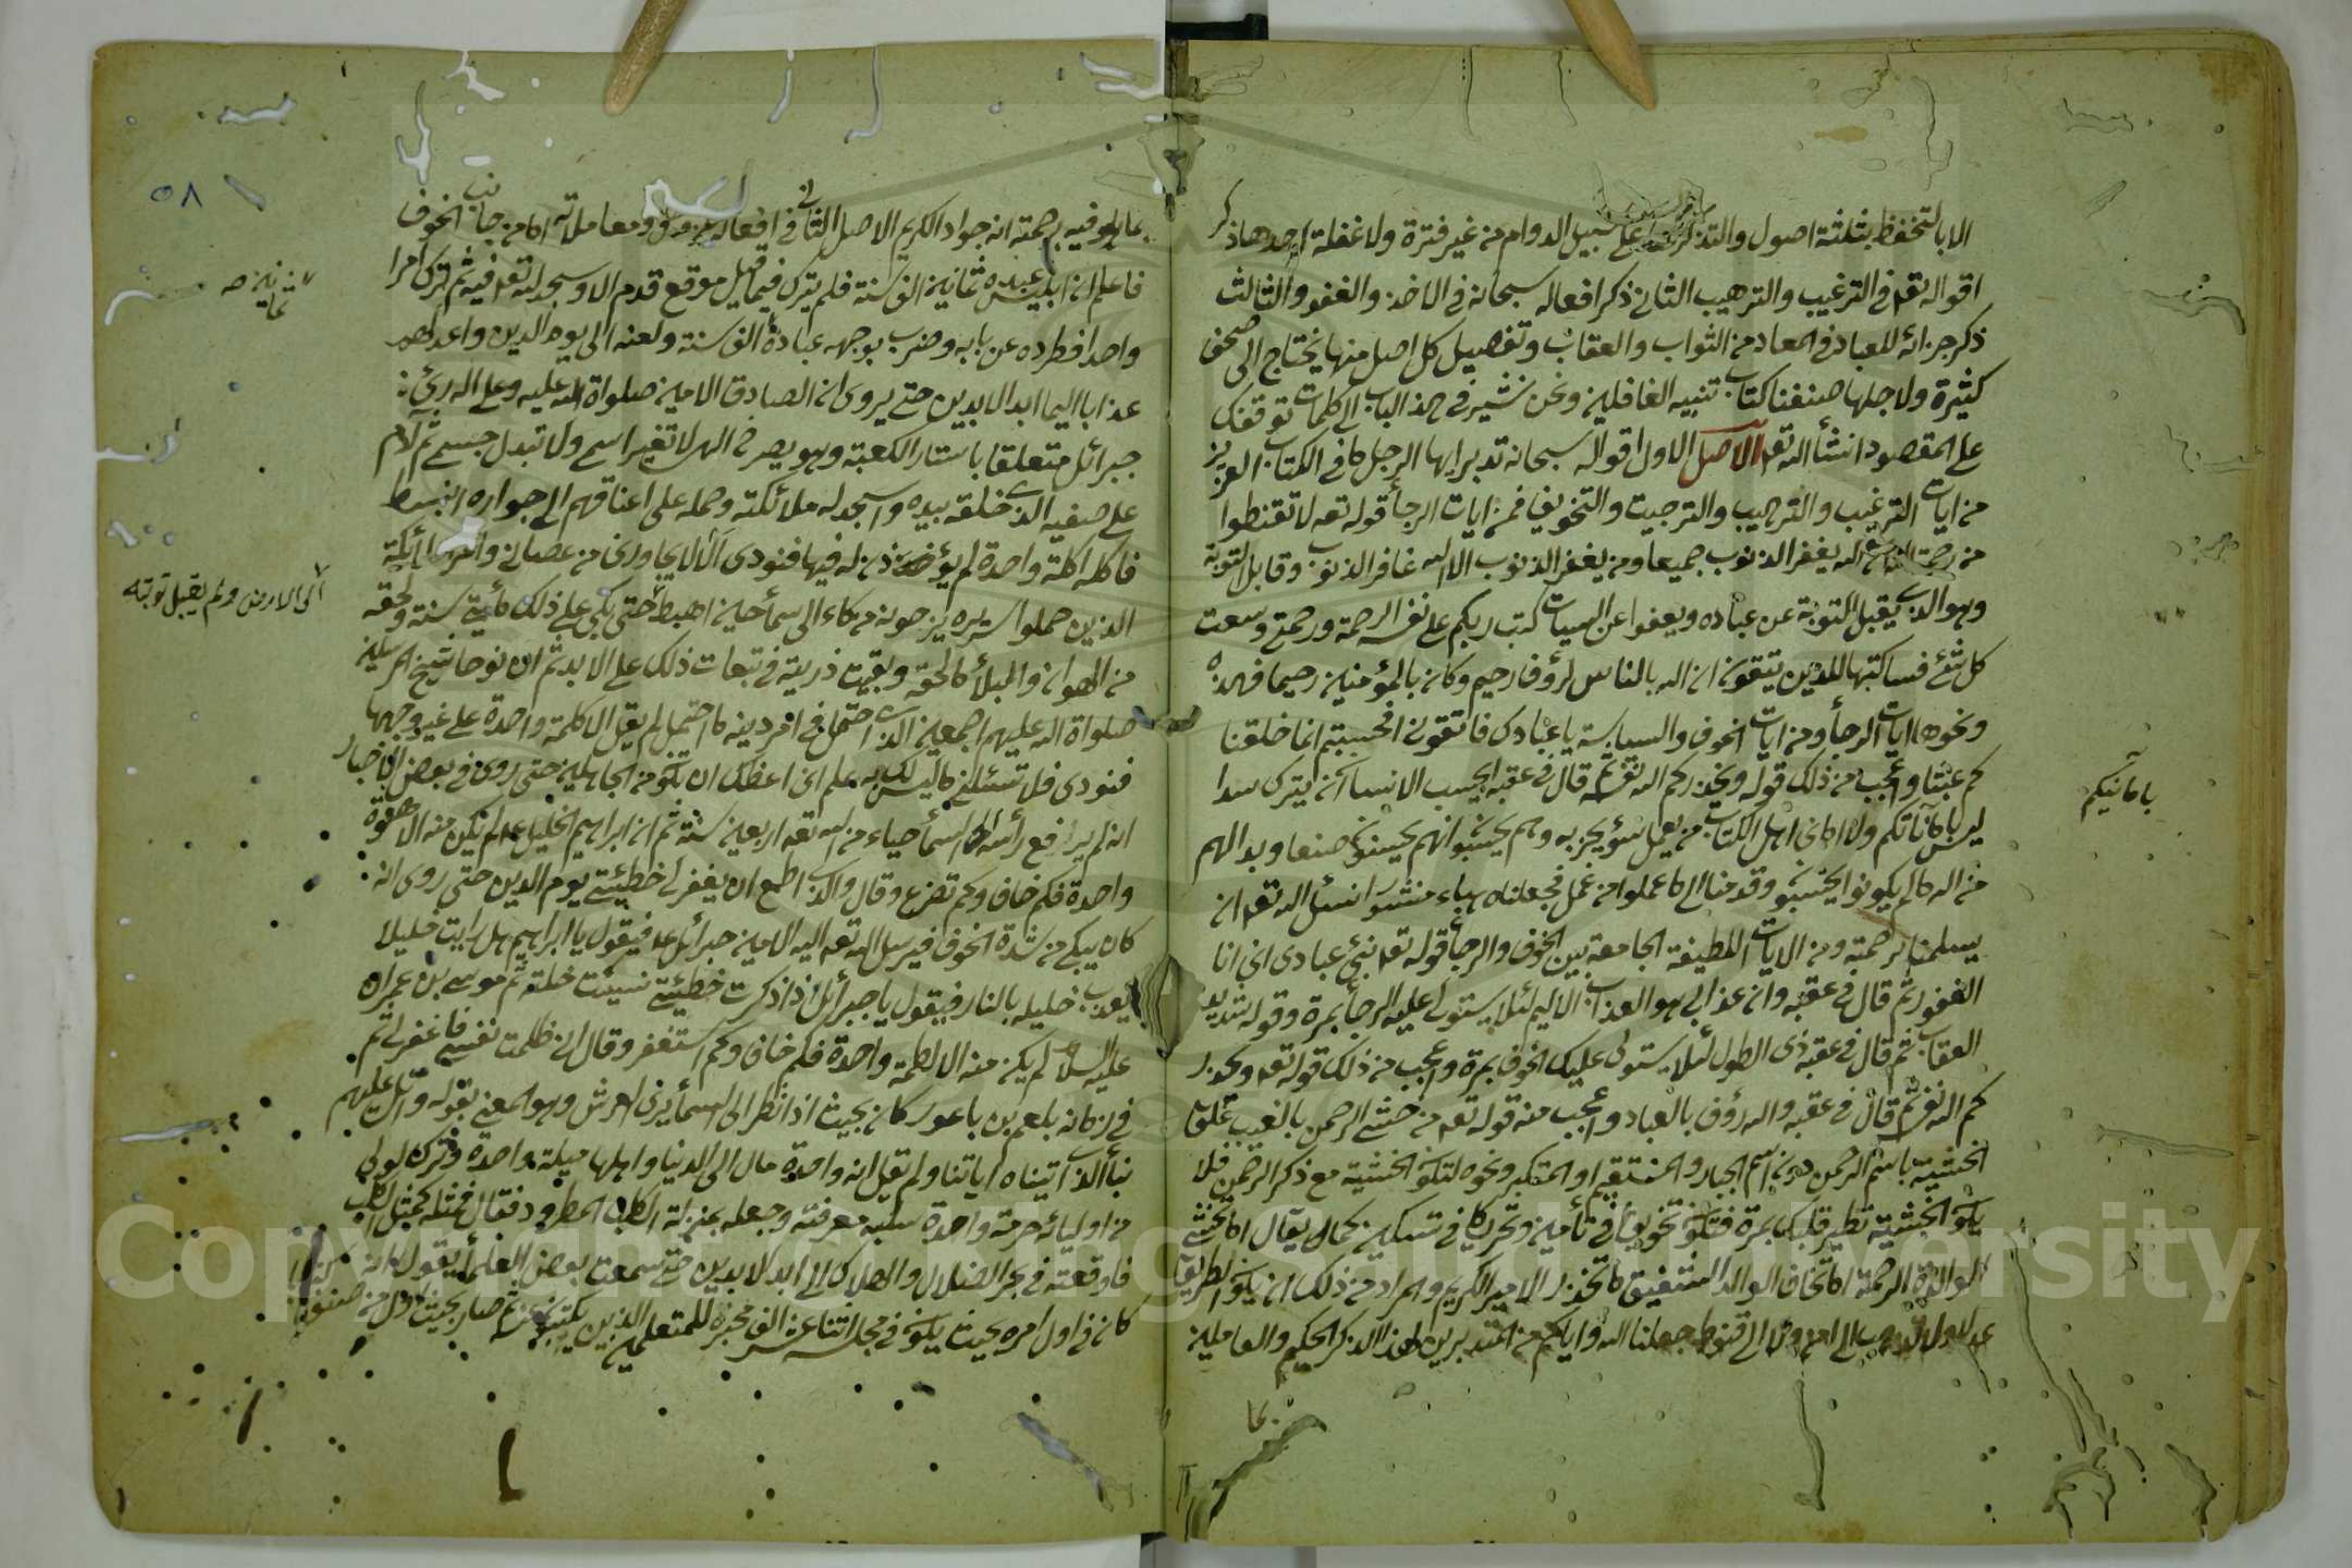 الا بالتحفظ بثلثة اصول والتذكر على سبيل الدوام من غير فترة ولا غفلة احدها ذكر
اقواله تعه في الترغيب والترهيب الثاني ذكر افعاله سبحانه في الاخذ والعفو والثالث
ذكر جزائه للعباد في المعاد من الثواب والعقاب وتفصيل كل اصل منها يحتاج الى صحف
كثيرة ولاجلها صنفنا كتاب تنبيه الغافلين ونحن نشير في هذا الباب الى كلمات توقفك
على المقصود انشأ الله تعه الاصل الاول اقواله سبحانه تدبر ايها الرجل ما في الكتاب العزيز
من ايات الترغيب والترهيب والترجيت والتخويف فمن ايات الرجأ قوله تعه لا تقنطوا
من رحمة الله ان الله يغفر الذنوب جميعا ومن يغفر الذنوب الا الله غافر الذنوب وقابل التوبة
وهو الذي يقبل التوبة عن عباده ويعفوا عن السيات كتب ربكم على نفسه الرحمة ورحمتي وسعت
كل شئ فساكتبها للذين يتقون ان الله بالناس لرؤف رحيم وكان بالمؤمنين رحيما فهذه
ونحوها ايات الرجأ ومن ايات الخوف والسياسة يا عبادي فاتقون افحسبتم انما خلقنا
كم عبثا واعجب من ذلك قوله ويحذركم الله نفسه ثم قال في عقبه ايحسب الانسان ان يترك سدا
ليس بامانيكم ولا اماني اهل الكتاب من يعمل سؤ يجز به وهم يحسبون انهم يحسنون صنعا وبدا لهم
من الله ما لم يكونوا يحتسبون وقدمنا الى ما عملوا من عمل فجعلناه هباء منثورا نسئل الله تعه ان
يسلمنا برحمته ومن الايات اللطيفة الجامعة بين الخوف والرجأ قوله تعه نبئ عبادي اني انا
الغفور ثم قال في عقبه وان عذابي هو العذاب الاليم لئلا يستولى عليه الرجأ بمرة وقوله شديد
العقاب ثم قال في عقبه ذي الطول لئلا يستولى عليك الخوف بمرة واعجب من ذلك قوله تعه ويحذر
كم الله نفسه ثم قال في عقبه والله رؤف بالعباد واعجب منه قوله تعه من خشي الرحمن بالغيب علق
الخشية باسم الرحمن دون اسم الجبار والمنتقم او المتكبر ونحوه لتكون الخشية مع ذكر الرحمن فلا
يكون الخشية تطير قلبك بمرة فتكون تخويفا في تأمين وتحريكا في تسكين كما يقال اما تخشى
الوالدة الرحمة اما تخاف الوالد الشفيق اما تحذر الامير الكريم والمراد من ذلك ان يكون الطريق
عدلا ولا الى قنوط جعلنا الله واياكم من المتدبرين لهذا الذكر الحكيم والعاملين
بامانيكم
بما
٥٨
بما فيه برحمته انه جواد الكريم الاصل الثاني في افعاله ومعاملاته اما من جانب الخوف
فاعلم ان ابليس عبده ثمانين الف سنة فلم يترك فيما قيل موقع قدم الا وسجد لله تعه فيه ثم ترك امرا
واحدا فطرده عن بابه وضرب بوجهه عبادة الف سنة ولعنه الى يوم الدين واعد له
عذابا اليما ابد الابدين حتى يروى ان الصادق الامين صلواة الله عليه وعلى اله رئ
جبرائل متعلقا باستار الكعبة وهو يصرخ الهى لا تغير اسمي ولا تبدل جسمي ثم لآدم
على صفيه الذي خلقه بيده واسجد له ملائكته وحمله على اعناقهم الى جواره
فاكل اكلة واحدة لم يؤذن له فيها فنودي الا لا يجاورني من عصاني وامر الملائكة
الذين حملوا سريره يزجونه من سماء الى سمأ حين اهبط حتى بكى على ذلك مأتي سنة ولحقه
من الهوان والبلأ ما لحقه وبقيت ذريته في تبعات ذلك على الابد ثم ان نوحا شيخ المرسلين
صلواة الله عليهم اجمعين الذي احتمل في امر دينه ما احتمل لم يقل الا كلمة واحدة على غير وجهها
فنودي فلا تسئلني ما ليس لك به علم اني اعظك ان تكون من الجاهلين حتى روى في بعض الاخبار
انه لم يرفع رأسه الى السمأ حياء من الله تعه اربعين سنة ثم ان ابراهيم الخليل عم لم يكن منه الا هفوة
واحدة فكم خاف وكم تضرع وقال والذي اطمع ان يغفر لي خطيئتي يوم الدين حتى روى انه
كان يبكي من شدة الخوف فيرسل الله تعه اليه الامين جبرائل عم فيقول يا ابراهيم هل رايت خليلا
يعذب خليله بالنار فيقول يا جبرائل اذا ذكرت خطيئتي نسيت خلته ثم موسى بن عمران
عليه السلام لم يكن منه الا لطمة واحدة فكم خاف وكم استغفر وقال اني ظلمت نفسي فاغفر لي ثم
في زمانه بلعم بن باعور كان بحيث اذا نظر الى السمأ يرى العرش وهو المعني بقوله واتل عليهم
نبأ الذي اتيناه اياتنا ولم تقل انه واحدة مال الى الدنيا واهلها ميلة واحدة وترك لولي
من اوليائه حرمة واحدة سلبه معرفته وجعله بمنزلة الكلب المطرود فقال فمثله كمثل الكلب
فاوقعته في بحر الضلال والهلاك الى ابد الابدين حتى سمعت بعض العلمأ يقول انه
كان في اول امره بحيث يكون في مجلسه اثنا عشر الف محبرة للمتعلمين الذين يكتبون عنه ثم صار بحيث اول من صنف
ثمانين صح
الى الارض ولم يقبل توبته